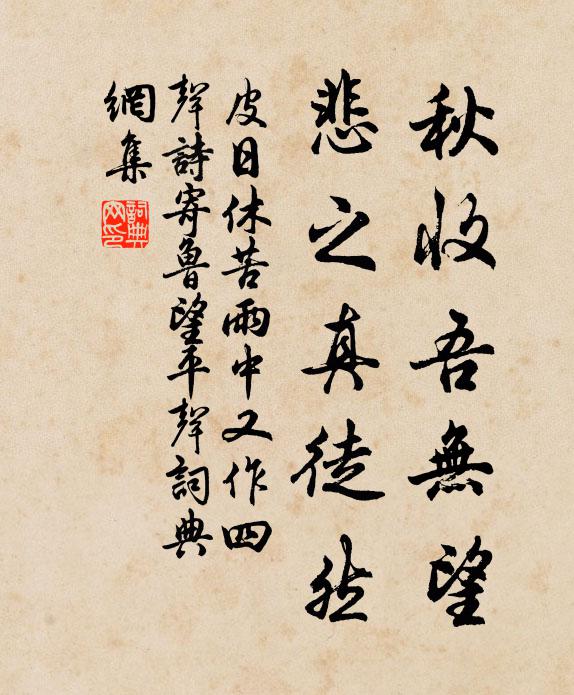 秋收吾無望
悲之真徒然
皮日休苦雨中又作四
聲詩寄魯望平聲詞典
網集
詞典
网印